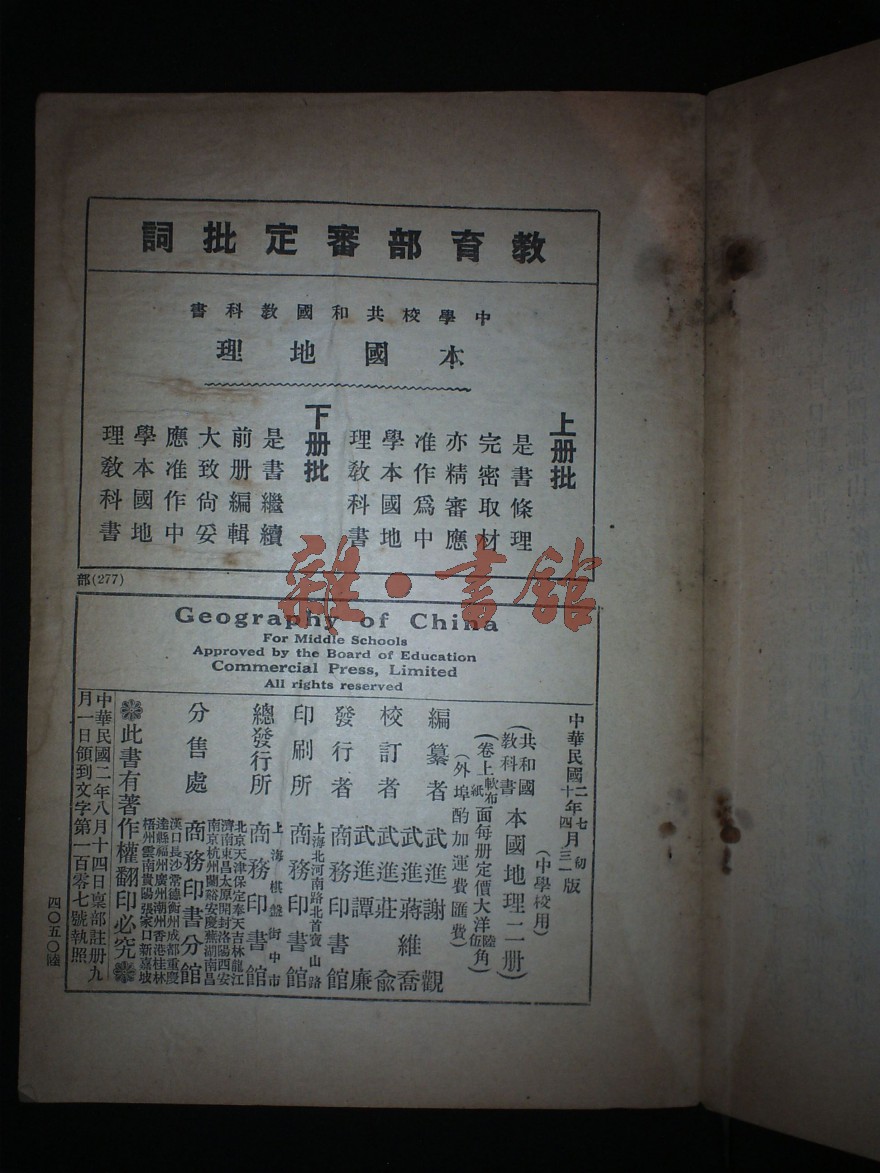 教育部審定批詞
中學校共和國教科書
本國地理
上册批
是書條理
完密取材
亦精審應
准作爲中
學本國地
理教科書
下册批
是書繼續
前册編輯
大致尙妥
應准作中
學本國地
理教科書
部(277)
雜·書館
Geography of China
For Middle Schools
Approved by the Board of Education
Commercial Press, Limited
All rights reserved
中華民國二年七月初版
十四 三一
(中學校用)
(共和國教科書本國地理二册)
(卷上軟布面每册定價大洋陸角)
紙 伍
(外埠酌加運費匯費)
編纂者 武進謝觀
校訂者 武進蔣維喬
武進莊俞
武進譚廉
發行者 商務印書館
印刷所 上海北河南路北首寶山路
商務印書館
總發行所 上海棋盤街中市
商務印書館
分售處 北京天津保定奉天吉林龍江
濟南東昌太原開封洛陽西安
南京杭州蘭谿安慶蕪湖南昌
商務印書分館
漢口長沙常德衡州成都重慶
達縣福州廣州潮州香港桂林
梧州雲南貴陽張家口新嘉坡
此書有著作權翻印必究
中華民國二年八月十四日稟部註册九
月一日領到文字第一百零七號執照
四〇五〇陸